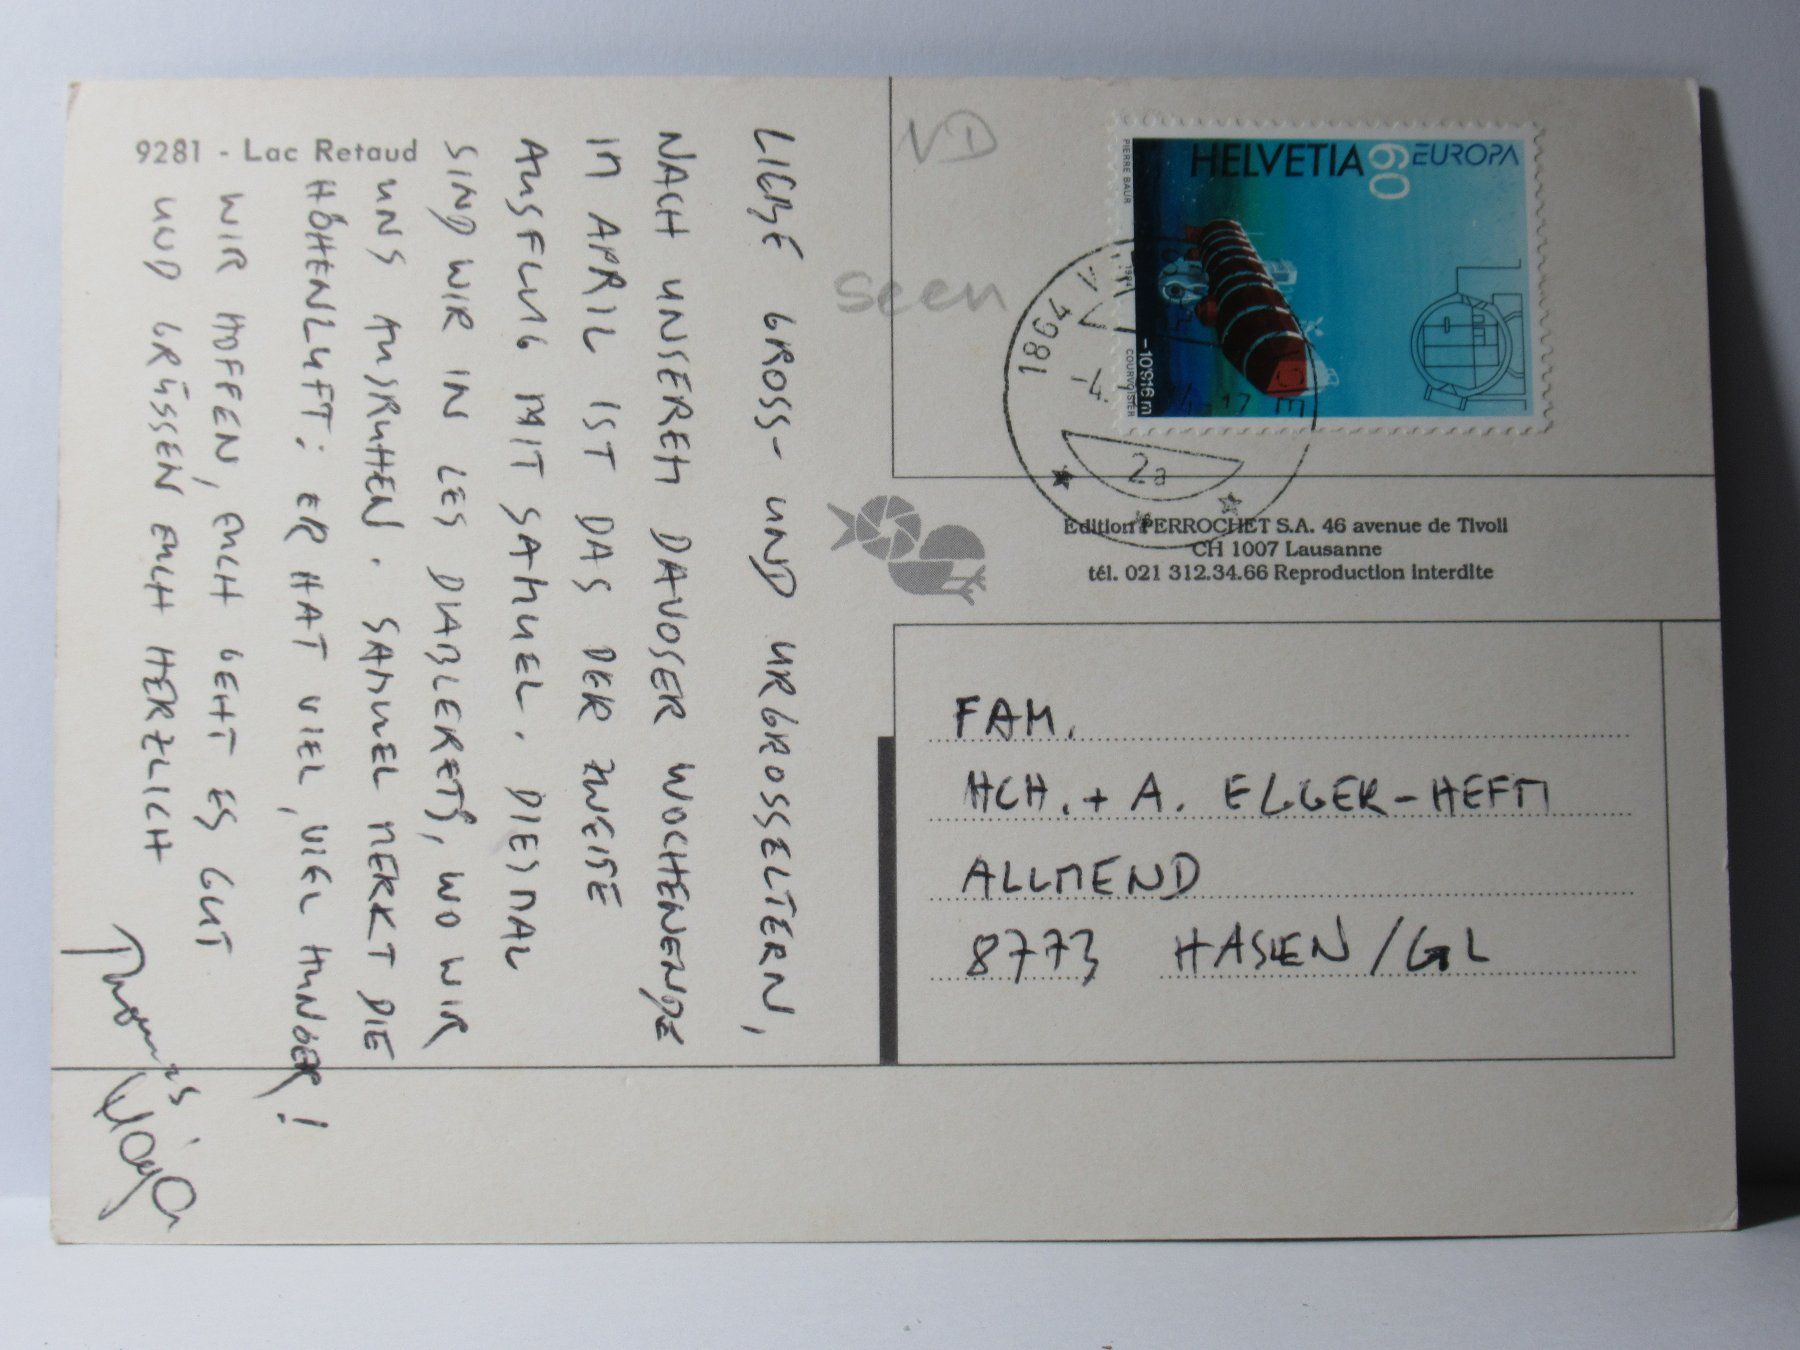 9281 - Lac Retaud
LIEBE GROSS- UND URGROSSELTERN,
NACH UNSEREM DAVOSER WOCHENENDE
IM APRIL IST DAS DER ZWEITE
AUSFLUG MIT SAMUEL. DIESMAL
SIND WIR IN LES DIABLERETS, WO WIR
UNS AUSRUHEN. SAMUEL MERKT DIE
HÖHENLUFT: ER HAT VIEL, VIEL HUNGER!
WIR HOFFEN, EUCH GEHT ES GUT
UND GRÜSSEN EUCH HERZLICH
Thomas,
VD
seen
HELVETIA 60 EUROPA
PIERRE BAUR 1994 COURVOISIER
-10'916 m
1864
2a
Edition PERROCHET S.A. 46 avenue de Tivoli
CH 1007 Lausanne
tél. 021 312.34.66 Reproduction interdite
FAM.
HCH. + A. ELGGER-HEFTI
ALLMEND
8773 HASLEN/GL